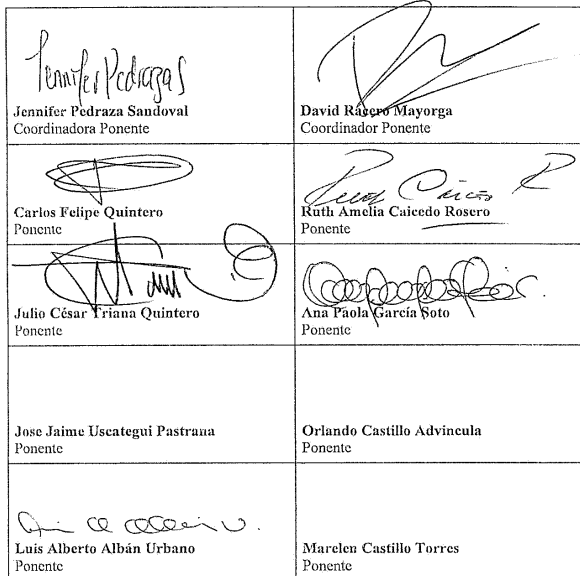 Jennifer Pedraza S
Jennifer Pedraza Sandoval
Coordinadora Ponente
David Racero Mayorga
Coordinador Ponente
Carlos Felipe Quintero
Ponente
Ruth Caicedo R
Ruth Amelia Caicedo Rosero
Ponente
Julio César Triana Quintero
Ponente
Ana Paola García Soto
Ponente
Jose Jaime Uscategui Pastrana
Ponente
Orlando Castillo Advincula
Ponente
Luis Alberto Albán Urbano
Ponente
Marelen Castillo Torres
Ponente